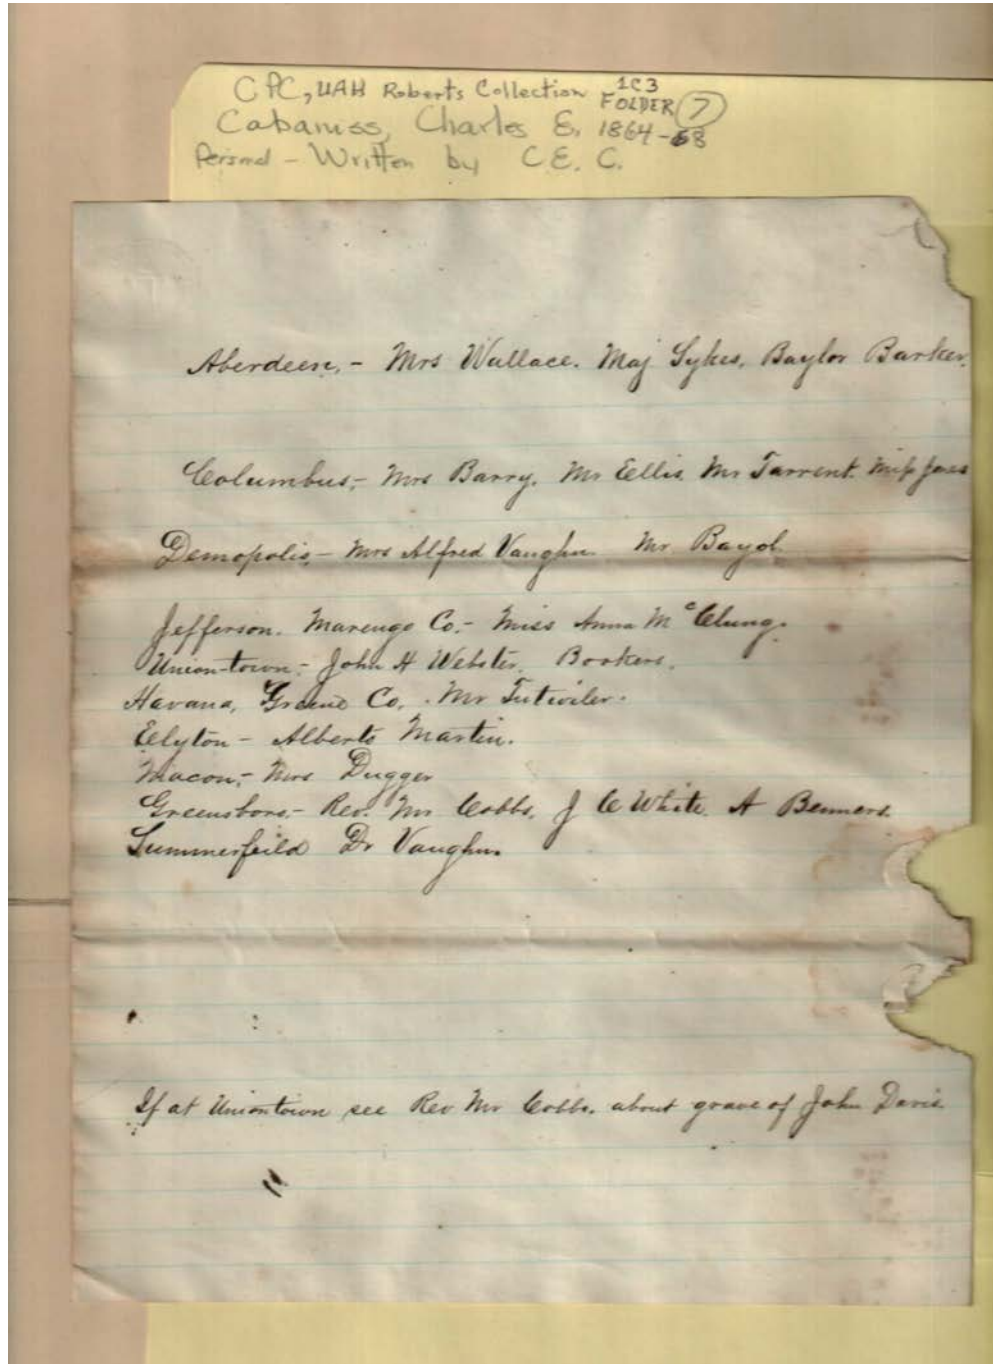 CPC, UAH Roberts Collection 1C3
FOLDER 7
Cabaniss, Charles E. 1864-68
Personal - Written by C.E.C.
Aberdeen, - Mrs Wallace. Maj Sykes, Baylor Barker.
Columbus, - Mrs Barry. Mr Ellis. Mr Tarrent. Miss Jones
Demopolis, - Mrs Alfred Vaughn Mr. Bayol.
Jefferson. Marengo Co. - Miss Anna McClung.
Uniontown, - John H Webster. Bookers.
Havana, Greene Co, . Mr Tutwiler.
Elyton - Alberto Martin.
Macon, - Mrs Dugger
Greensboro. - Rev. Mr Cobbs. J C White. A Benners.
Summerfeild Dr Vaughn.
If at Uniontown see Rev Mr Cobbs. about grave of John Davis